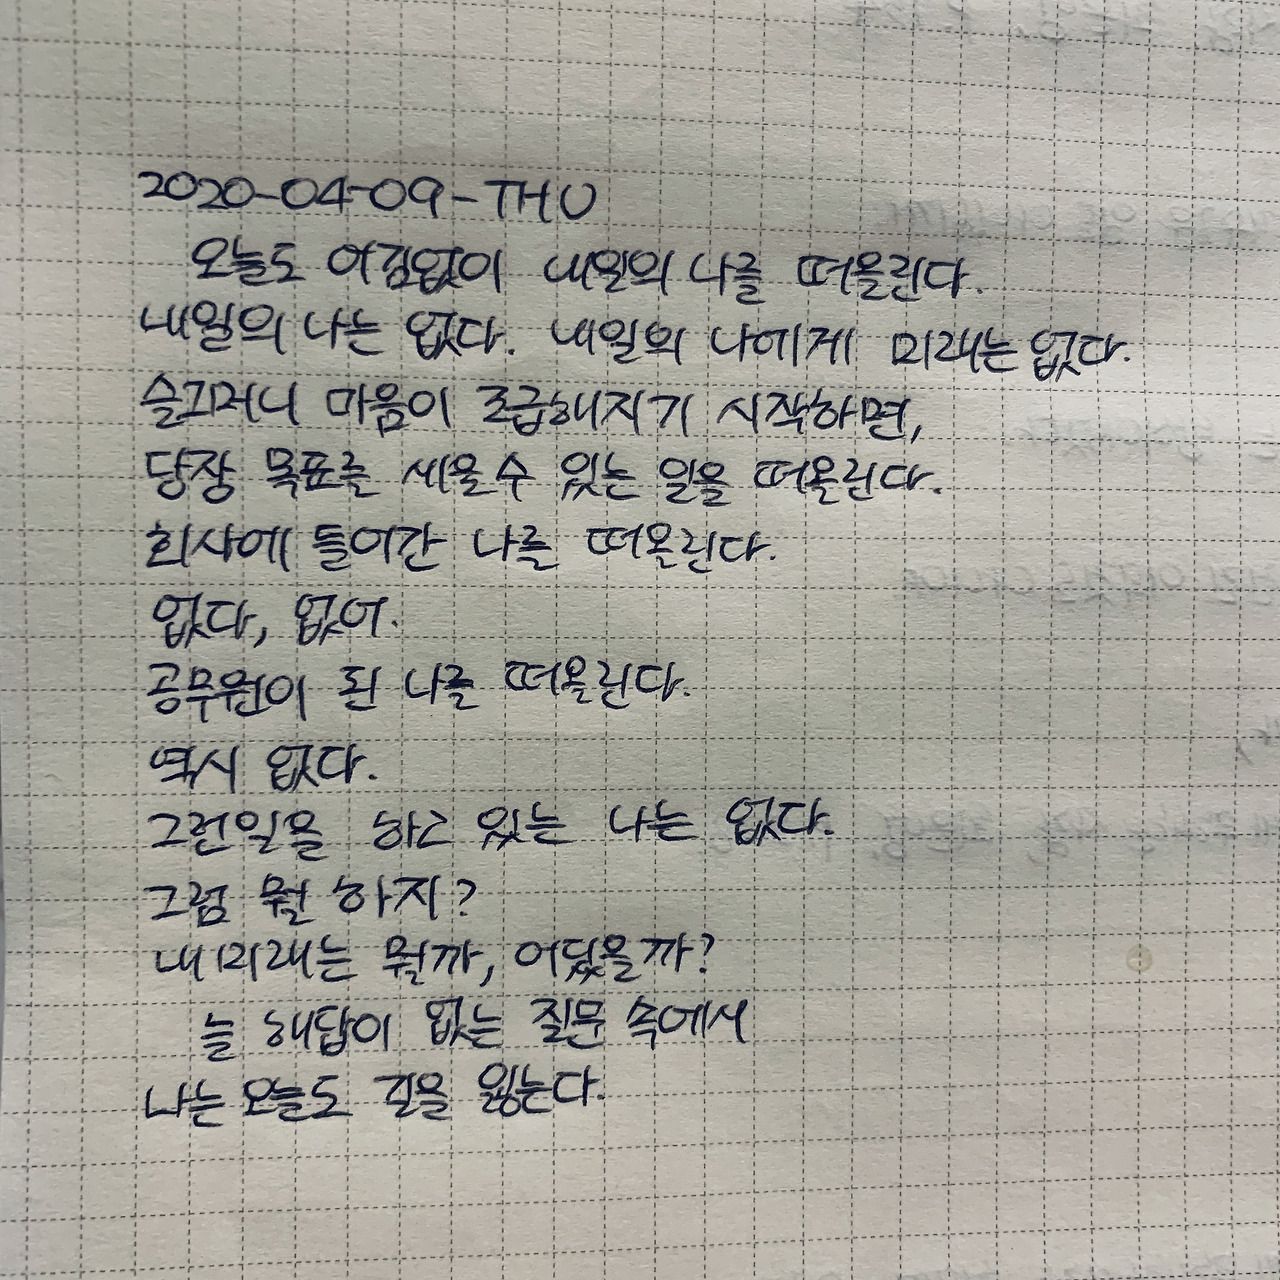 2020-04-09-THU
오늘도 어김없이 내일의 나를 떠올린다.
내일의 나는 없다. 내일의 나에게 미래는 없다.
슬그머니 마음이 조급해지기 시작하면,
당장 목표를 세울 수 있는 일을 떠올린다.
회사에 들어간 나를 떠올린다.
없다, 없어.
공무원이 된 나를 떠올린다.
역시 없다.
그런일을 하고 있는 나는 없다.
그럼 뭘 하지?
내 미래는 뭘까, 어딨을까?
늘 해답이 없는 질문 속에서
나는 오늘도 길을 잃는다.